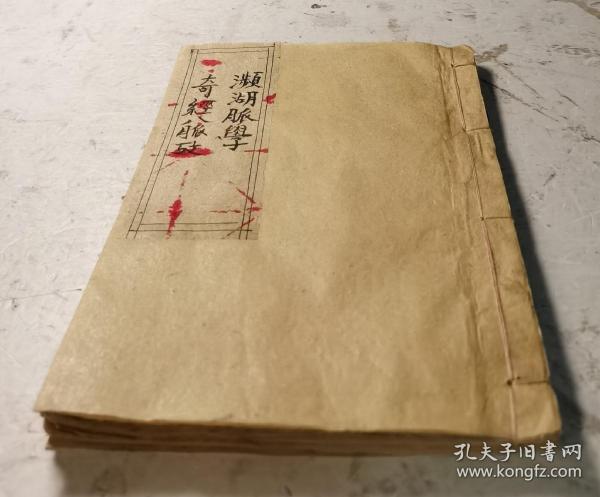 瀕湖脈學
奇經八脈攷
孔夫子旧书网
www.kongfz.com